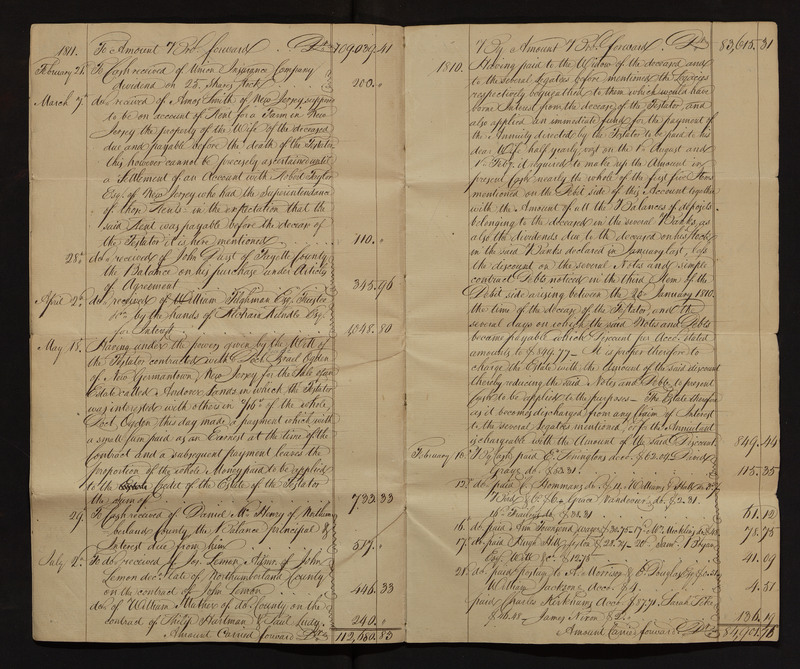 1811. To Amount Bro.t forward . Drs 109,039.41
February 21. To Cash received of Union Insurance Company
dividend on 25. Shares Stock . 200. "
March 7th do. received of Amos Smith of New Jersey suppos
to be on account of Rent for a Farm in New
Jersey the property of the Wife of the deceased
due and payable before the death of the Testator
this however cannot be precisely ascertained until
a Settlement of an Account with Robert Taylor
Esq.r of New Jersey who had the Superintendance
of those Rents in the expectation that the
said Rent was payable before the decease of
the Testator it is here mentioned . . . 110. "
28th do. received of John of Fayette County
the Balance on his purchase under Articles
of Agreement . . . 345.96
April 2d. do. received of William Tilghman Esq. Trustee
&c. by the hands of Esq.
for Interest . . . 1048.80
May 15. Having under the powers given by the Will of
the Testator contracted with Doct. Ogden
of New Germantown, New Jersey for the Sale of an
Estate called Andover Lands in which the Testator
was interested with others in of the whole,
Doct. Ogden this day made a payment which with
a small sum paid as an Earnest at the time of the
Contract and a subsequent payment leaves the
proportion of the whole Money paid to be applied
to the Credit of the Estate of the Testator
the Sum of . . . 733.33
29. To Cash received of David McHenry of Northum
berland County the Balance principal &
Interest due from him . . . 517. "
July 2d. To do. received of Jas. Lemon Admr. of John
Lemon decd. late of Northumberland County
on the contract of John Lemon . . . 446.33
do. of William Mathers of do. County on the
contract of Philip Hartman & Paul . . . 240. "
Amount Carried forward Drs 112,680.83
By Amount Bro.t forward . Drs 83,615.31
1810. Having paid to the Widow of the deceased and
to the several Legatees before mentioned the Legacies
respectively bequeathed to them which would have
borne Interest from the decease of the Testator, and
also applied an immediate fund for the payment of
the Annuity directed by the Testator to be paid to his
dear Wife half yearly, vizt on the 1st August and
1st Feby. it required to make up the Amount in
present Cash nearly the whole of the first five Items
mentioned on the Debit side of this Account together
with the Amount of all the Balances of deposits
belonging to the deceased in the several Banks, as
also the dividends due to the deceased on his Stock
in the said Banks declared in January last, less
the discount on the several Notes and simple
contract Debts noticed in the third Item of the
Debit side arising between the 20th January 1810.
the time of the decease of the Testator and the
several days on which the said Notes and Debts
became payable which Discount per Acct. stated
amounts to $849.44 — It is proper therefore to
charge the Estate with the Amount of the said discount
thereby reducing the said Notes and Debts to present
Cash to be applied to the purposes — The Estate therefore
as it becomes discharged from any Claim of Interest
to the several Legatees mentioned, or for the Annuitant
is chargeable with the Amount of the said Discount 849.44
February 16. By Cash paid E. acct. $62.04 David
do. $53.31. . . . 115.35
12. do. paid C.
Grace do. $2.31.
61.12
16. do. paid Ann 78.75
17. do. paid Hugh
Esq. Will &c. $12.75 . . . 41.09
21. do. paid postage to A. Morrison & E. Douglas
William Jackson's acct. $4. . . . 4.51
paid Charles Kirkham's Acct. $87.71 Sarah
$46.48 — James Nixon $2. . . . 136.19
Amount Carried forward Drs 84,901.76